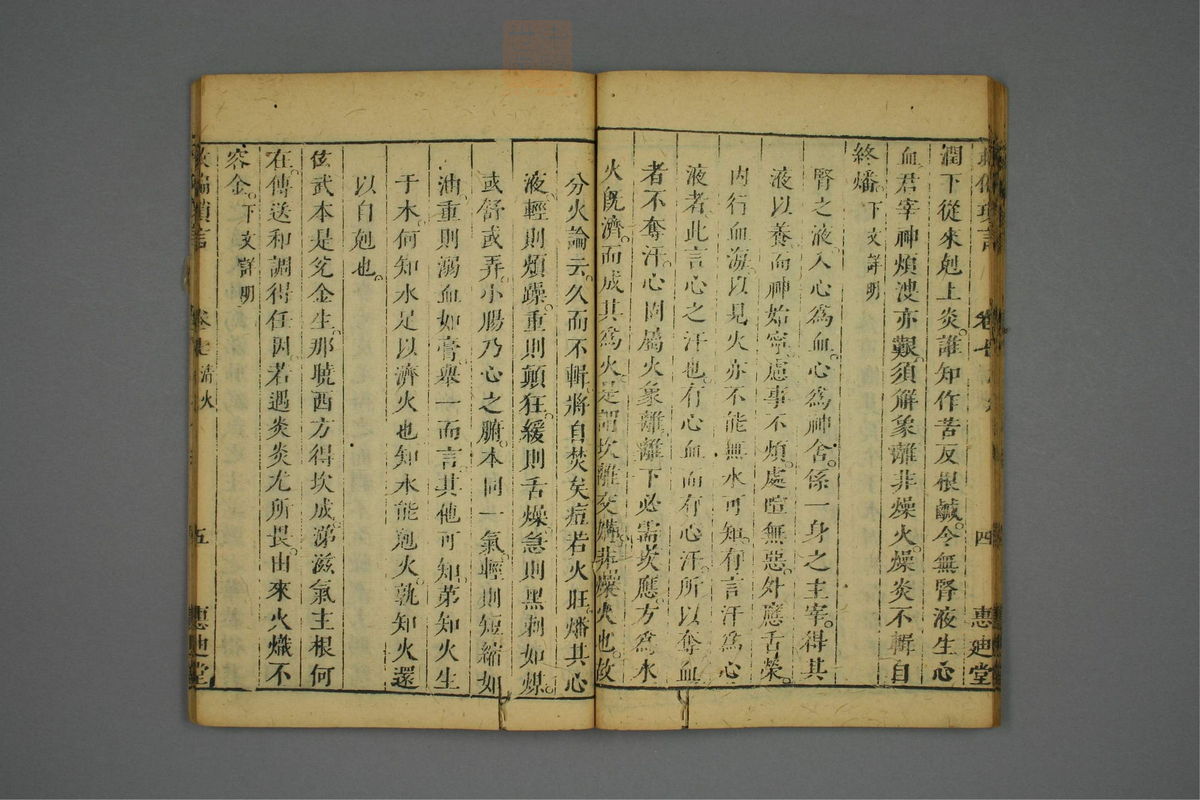 卷七
四
惠迪堂
潤下從來剋上炎。誰知作苦反根鹹。今無腎液生心
血。君宰神煩溲亦艱。須解象離非燥火。燥炎不輯自
終燔。下文詳明
腎之液。入心為血。心為神舍。係一身之主宰。得其
液以養而神始寧。慮事不煩。處暄無惡。外應舌榮。
內行血海。以見火亦不能無水可知。有言汗為心
液者。此言心之汗也。有心血而有心汗。所以奪血
者不奪汗。心固屬火象離。離下必需坎應。方為水
火旣濟。而成其為火。是謂坎離交媾。非燥火也。故
分火論云。久而不輯。將自焚矣。痘若火旺。燔其心
液。輕則煩躁。重則顛狂。緩則舌燥。急則黑刺如煤。
或舒或弄。小腸乃心之腑。本同一氣。輕則短縮如
油。重則溺血如膏。舉一而言。其他可知。第知火生
于木。何知水足以濟火也。知水能剋火。孰知火還
以自剋也。
武本是兊金生。那曉西方得坎成。涕滋氣主根何
在。傳送和調得任因。若遇炎炎尢所畏。由來火熾不
容金。下文詳明
瑣言
卷七 清火
五
惠迪堂